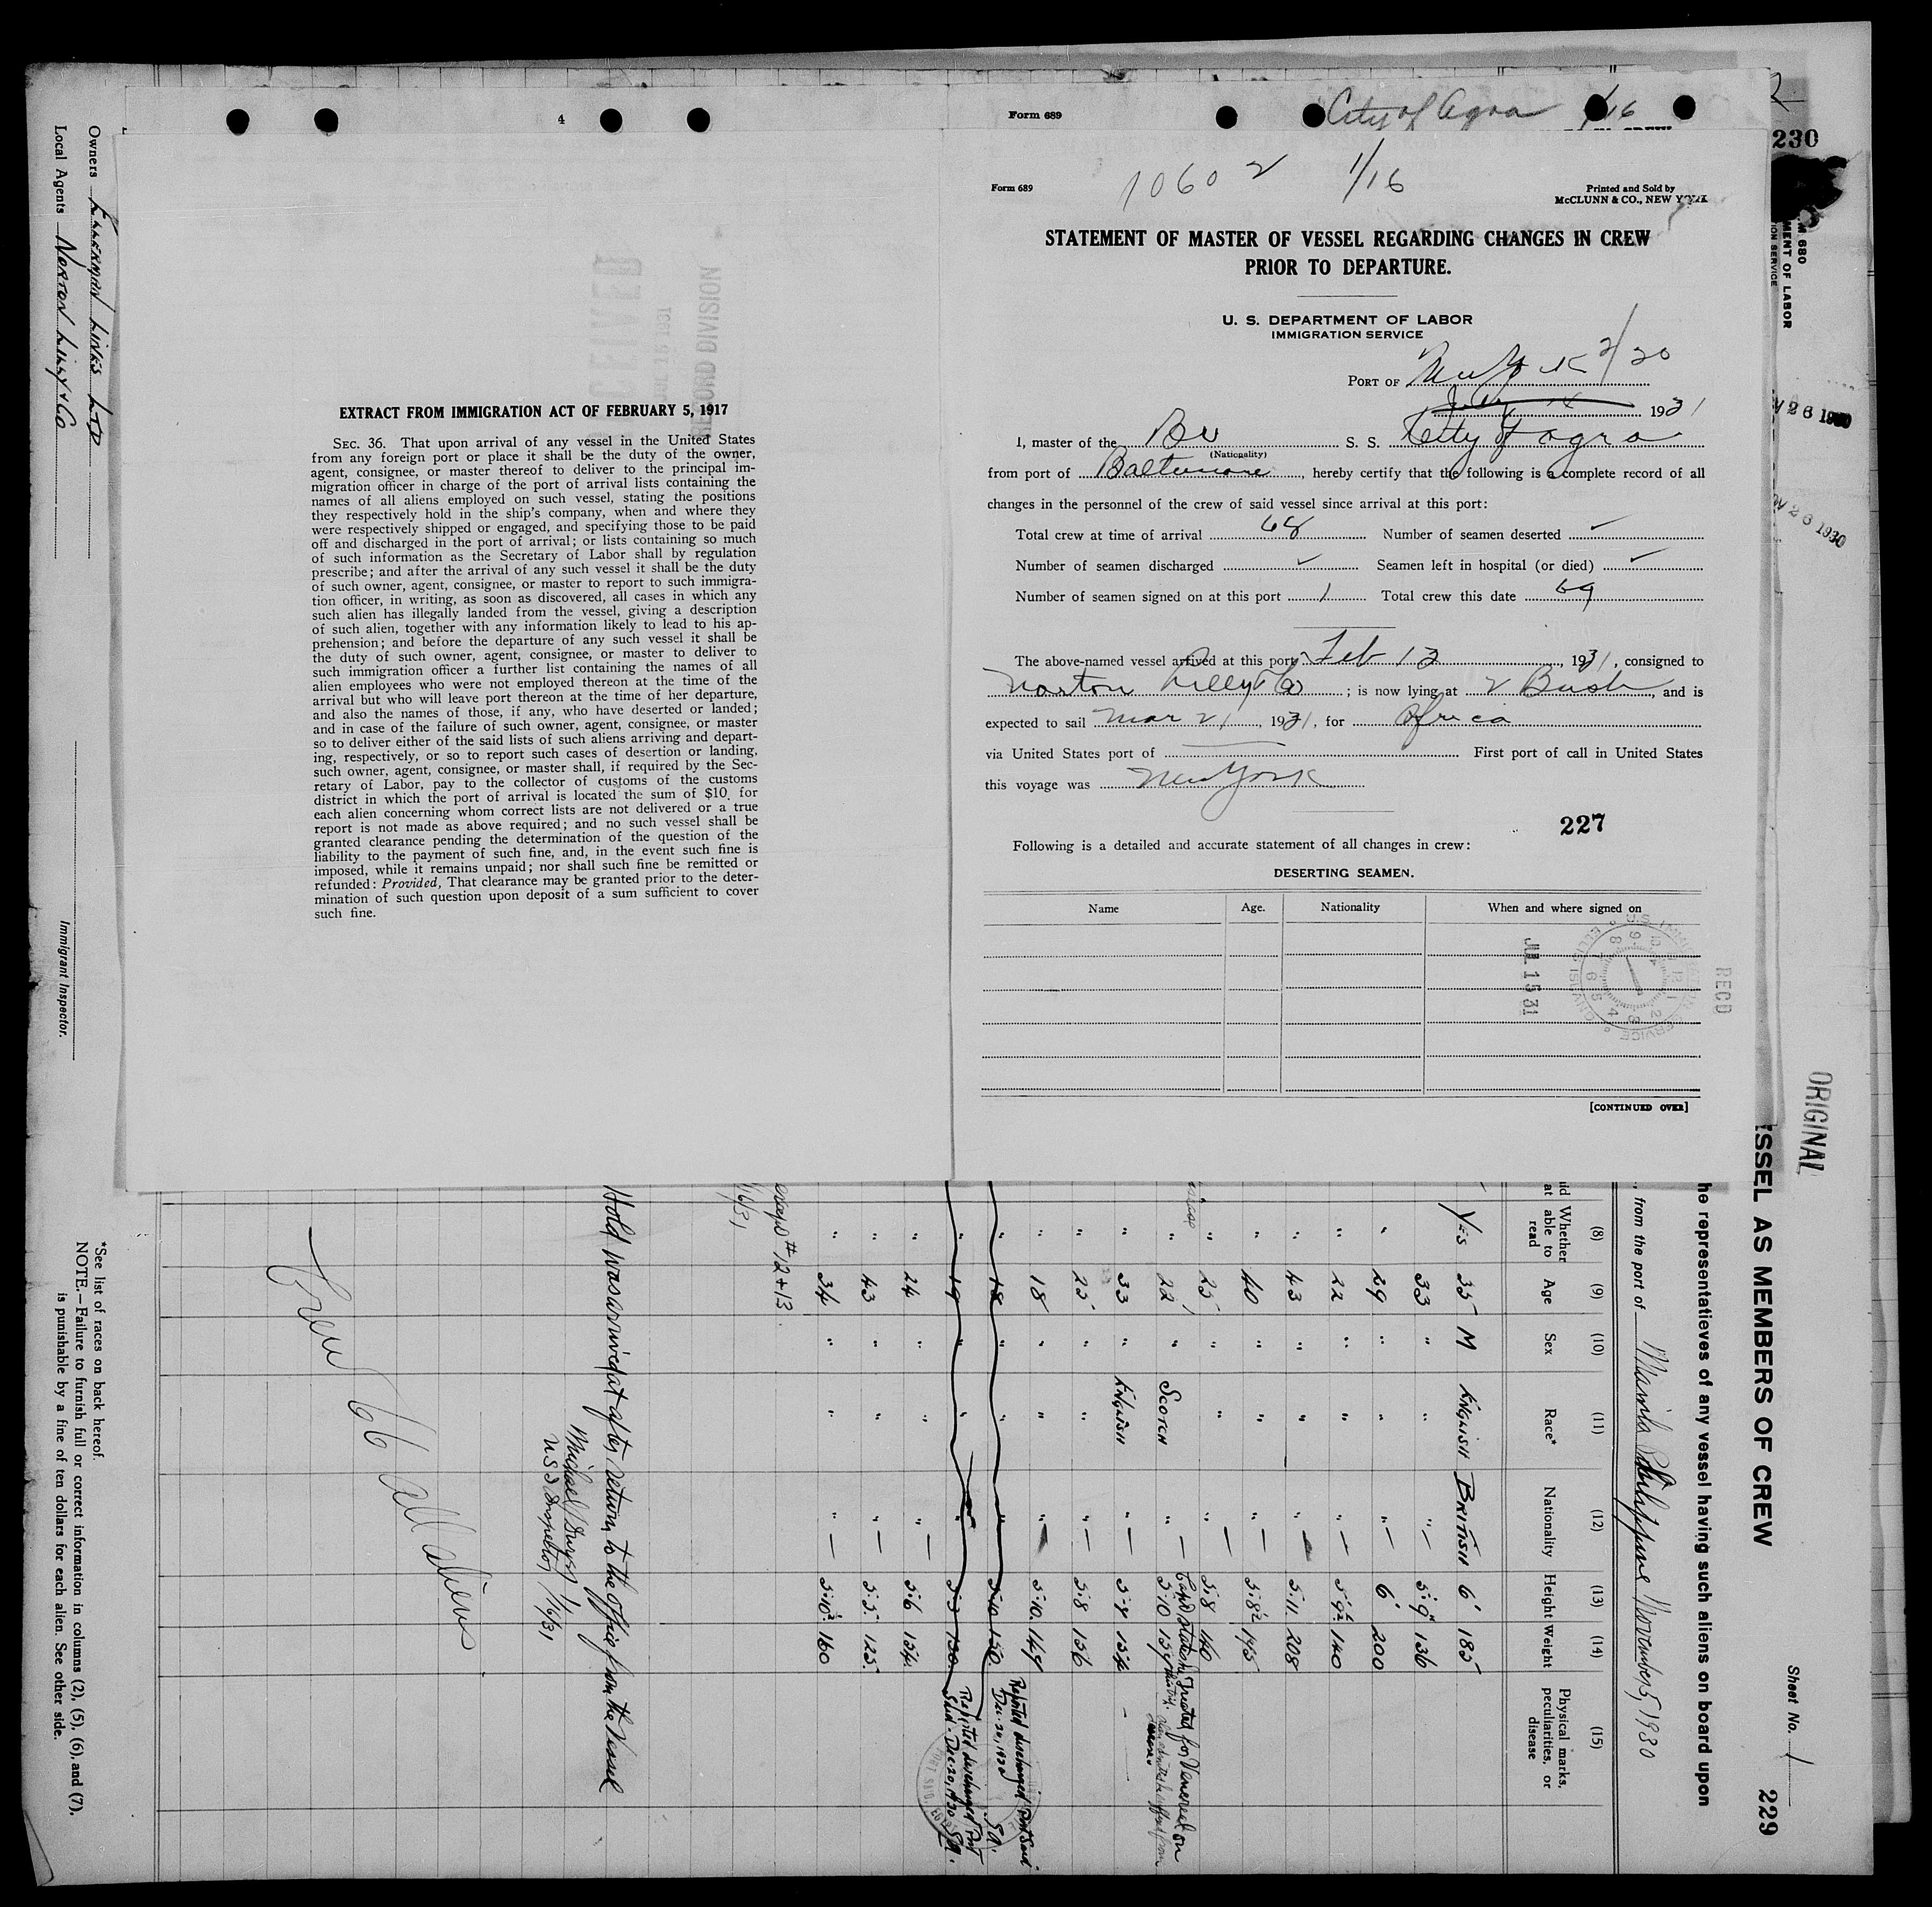 Form 689
City of Agra 1/16
4
Form 689
10602 1/16
Printed and Sold by
McCLUNN & CO., NEW YORK
STATEMENT OF MASTER OF VESSEL REGARDING CHANGES IN CREW
PRIOR TO DEPARTURE.
U. S. DEPARTMENT OF LABOR
IMMIGRATION SERVICE
PORT OF New York 2/20
1931
I, master of the Br S. S. City of Agra
(Nationality)
from port of Baltimore, hereby certify that the following is a complete record of all
changes in the personnel of the crew of said vessel since arrival at this port:
Total crew at time of arrival 68 Number of seamen deserted
Number of seamen discharged Seamen left in hospital (or died)
Number of seamen signed on at this port 1 Total crew this date 69
The above-named vessel arrived at this port Feb 13, 1931, consigned to
Norton Lilly & Co; is now lying at 2 Bush, and is
expected to sail Mar 21, 1931, for Africa
via United States port of First port of call in United States
this voyage was New York
227
Following is a detailed and accurate statement of all changes in crew:
DESERTING SEAMEN.
Name Age. Nationality When and where signed on
[CONTINUED OVER]
JUL 15 31
RECD
U.S. IMMIGRATION SERVICE
ELLIS ISLAND
EXTRACT FROM IMMIGRATION ACT OF FEBRUARY 5, 1917
SEC. 36. That upon arrival of any vessel in the United States
from any foreign port or place it shall be the duty of the owner,
agent, consignee, or master thereof to deliver to the principal im-
migration officer in charge of the port of arrival lists containing the
names of all aliens employed on such vessel, stating the positions
they respectively hold in the ship's company, when and where they
were respectively shipped or engaged, and specifying those to be paid
off and discharged in the port of arrival; or lists containing so much
of such information as the Secretary of Labor shall by regulation
prescribe; and after the arrival of any such vessel it shall be the duty
of such owner, agent, consignee, or master to report to such immigra-
tion officer, in writing, as soon as discovered, all cases in which any
such alien has illegally landed from the vessel, giving a description
of such alien, together with any information likely to lead to his ap-
prehension; and before the departure of any such vessel it shall be
the duty of such owner, agent, consignee, or master to deliver to
such immigration officer a further list containing the names of all
alien employees who were not employed thereon at the time of the
arrival but who will leave port thereon at the time of her departure,
and also the names of those, if any, who have deserted or landed;
and in case of the failure of such owner, agent, consignee, or master
so to deliver either of the said lists of such aliens arriving and depart-
ing, respectively, or so to report such cases of desertion or landing,
such owner, agent, consignee, or master shall, if required by the Sec-
retary of Labor, pay to the collector of customs of the customs
district in which the port of arrival is located the sum of $10. for
each alien concerning whom correct lists are not delivered or a true
report is not made as above required; and no such vessel shall be
granted clearance pending the determination of the question of the
liability to the payment of such fine, and, in the event such fine is
imposed, while it remains unpaid; nor shall such fine be remitted or
refunded: Provided, That clearance may be granted prior to the deter-
mination of such question upon deposit of a sum sufficient to cover
such fine.
RECORD DIVISION
Owners Ellerman Lines Ltd
Local Agents Norton Lilly & Co
Immigrant Inspector.
230
MENT OF LABOR
ION SERVICE
V 26 1930
OV 26 1930
ORIGINAL
Sheet No. 1
229
SSEL AS MEMBERS OF CREW
he representatieves of any vessel having such aliens on board upon
, from the port of Manila Philippine November 5, 1930
(8) (9) (10) (11) (12) (13) (14) (15)
Whether able to read Age Sex Race* Nationality Height Weight Physical marks, peculiarities, or disease
Yes 35 M English British 6' 185
" 33 " " " 5.9 136
" 29 " " " 6' 200
" 22 " " " 5.9½ 140
" 43 " " " 5.11 208
" 40 " " " 5.8½ 145
" 25 " " " 5.8 140
" 22 " Scotch " 5.10 154
" 33 " English " 5.7 154
" 25 " " " 5.8 136
" 18 " " " 5.10 147
" 18 " " " 5.10 150 Reported discharged Port Said Dec. 20, 1930
" 19 " " " 5.3 130 Reported discharged Port Said - Dec. 20, 1930
" 24 " " " 5.6 134
" 43 " " " 5.5 125
" 34 " " " 5.10½ 160
except #12 + 13
1/16/31
Hold was arrived at after return to the office from the Vessel
U S I Inspector 1/16/31
Crew 66 all aliens
*See list of races on back hereof.
NOTE.—Failure to furnish full or correct information in columns (2), (5), (6), and (7),
is punishable by a fine of ten dollars for each alien. See other side.